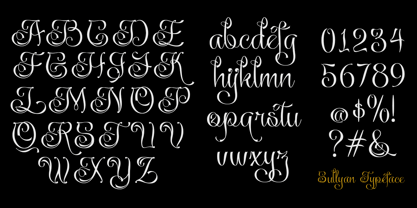 ABCDE
FGHIJK
LMNOP
QRSTUV
WXYZ
abcdefg
hijklmn
opqrstu
vwxyz
01234
56789
@$%!
?#&
Sullyan Typeface